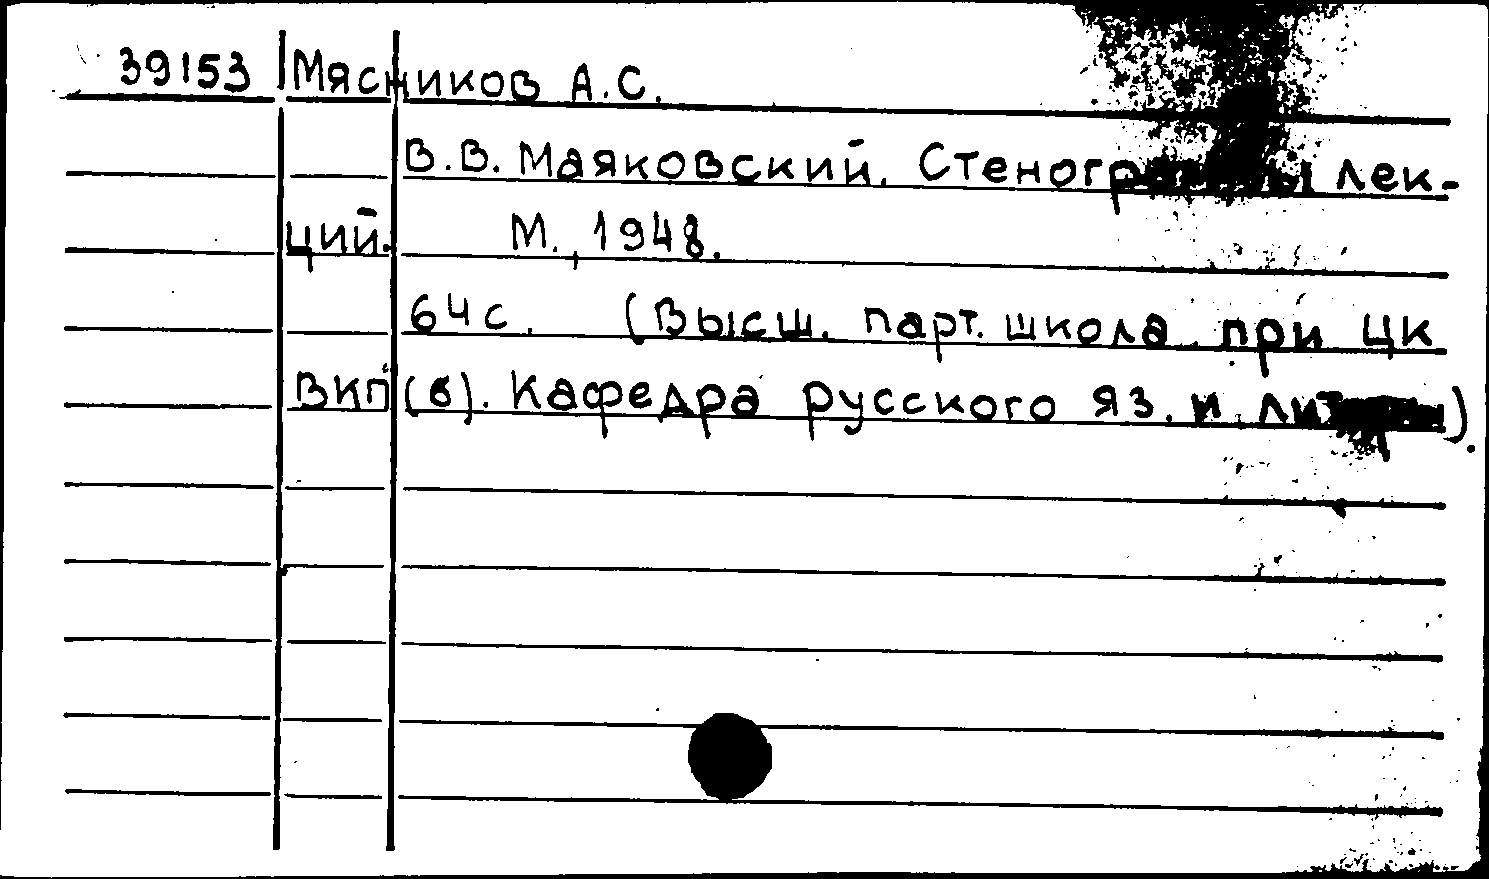 39153 Мясников А.С.
В.В. Маяковский. Стенограммы лек-
ций. М., 1948.
64с. (Высш. парт. школа при ЦК
ВКП(б). Кафедра русского яз. и